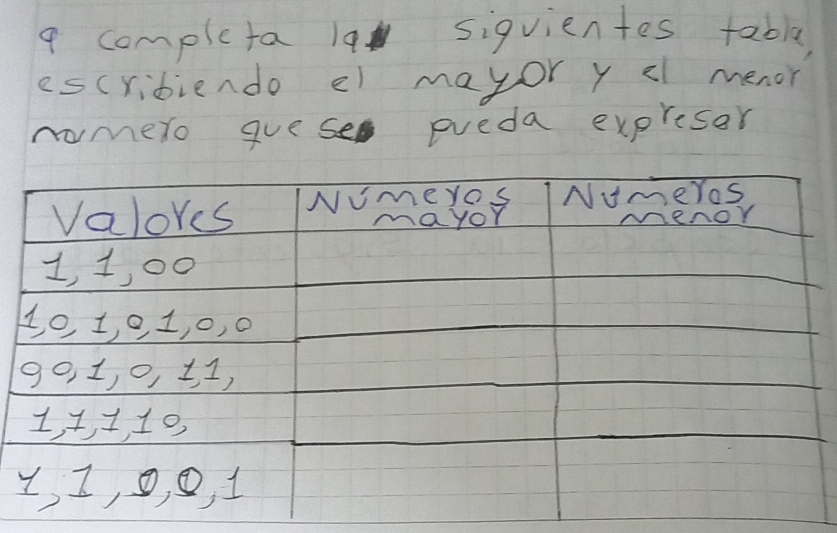 9 completa la siguientes tabla,
escribiendo el mayor y el menor
numero que se pueda expresar
Valores Números mayor Números menor
1, 1, 00
1,0, 1, 0, 1, 0, 0
90, 1, 0, 1,1,
1, 1, 1, 1 0,
1, 1, 0, 0, 1